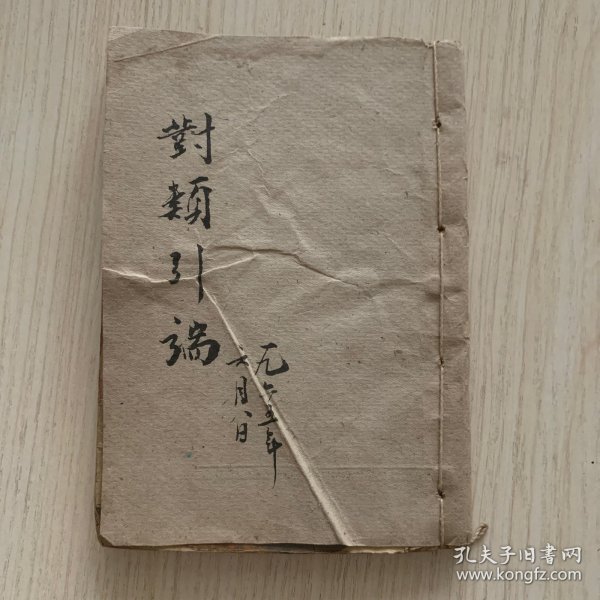 對類引端
元六五年
六月八日
孔夫子旧书网
www.kongfz.com